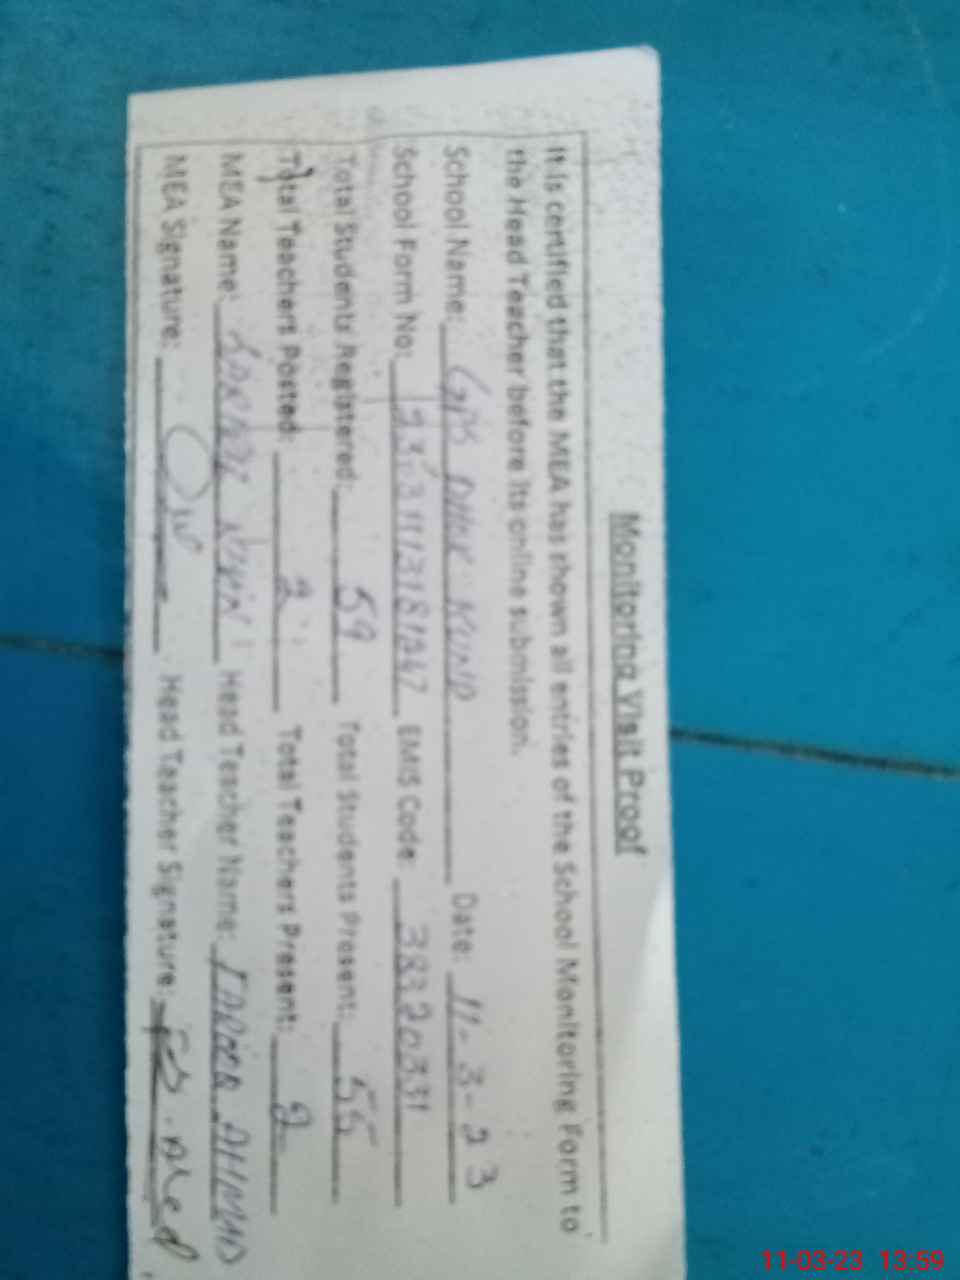 Monitoring Visit Proof
It is certified that the MEA has shown all entries of the School Monitoring Form to
the Head Teacher before its online submission.
School Name: GPS DHOK Date: 11-3-23
School Form No: EMIS Code: 38320331
Total Students Registered: 59 Total Students Present: 55
Total Teachers Posted: 2 Total Teachers Present: 2
MEA Name: Head Teacher Name: TARIQ AHMAD
MEA Signature: Head Teacher Signature:
11-03-23 13:59